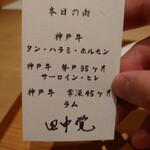 本日の肉
神戸牛
タン・ハラミ・ホルモン
神戸牛 雌戸35ヶ月
サーロイン・ヒレ
神戸牛 常深45ヶ月
ラム
田中覚